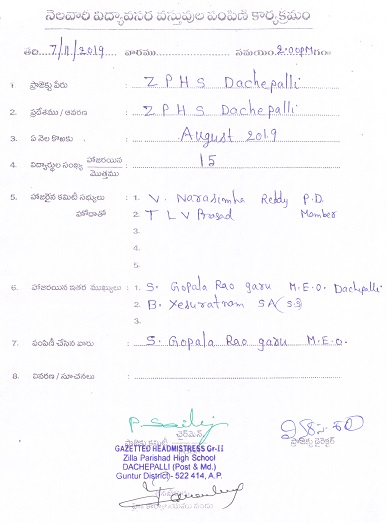 నెలవారీ విద్యావసర వస్తువుల పంపిణీ కార్యక్రమం
తేది: 7/11/2019 వారము సమయం: 2.00PM గం॥
1. ప్రాజెక్టు పేరు : Z P H S Dachepalli
2. ప్రదేశము / ఆవరణ : Z P H S Dachepalli
3. ఏ నెల కొఱకు : August 2019
4. విద్యార్థుల సంఖ్య హాజరయిన / మొత్తము : 15
5. హాజరైన కమిటీ సభ్యులు : 1. V. Narasimha Reddy P.D.
హోదాతో 2. T L V Prasad Member
3.
4.
5.
6. హాజరయిన ఇతర ముఖ్యులు : 1. S. Gopala Rao garu M.E.O. Dachepalli
2. B. Yesuratnam SA (S.S)
3.
7. పంపిణీ చేసిన వారు : S. Gopala Rao garu M.E.O.
8. వివరణ / సూచనలు :
ఛైర్మన్
ప్రాజెక్టు కమిటీ
ప్రాజెక్టు డైరెక్టర్
GAZETTED HEADMISTRESS Gr-II
Zilla Parishad High School
DACHEPALLI (Post & Md.)
Guntur District- 522 414, A.P.